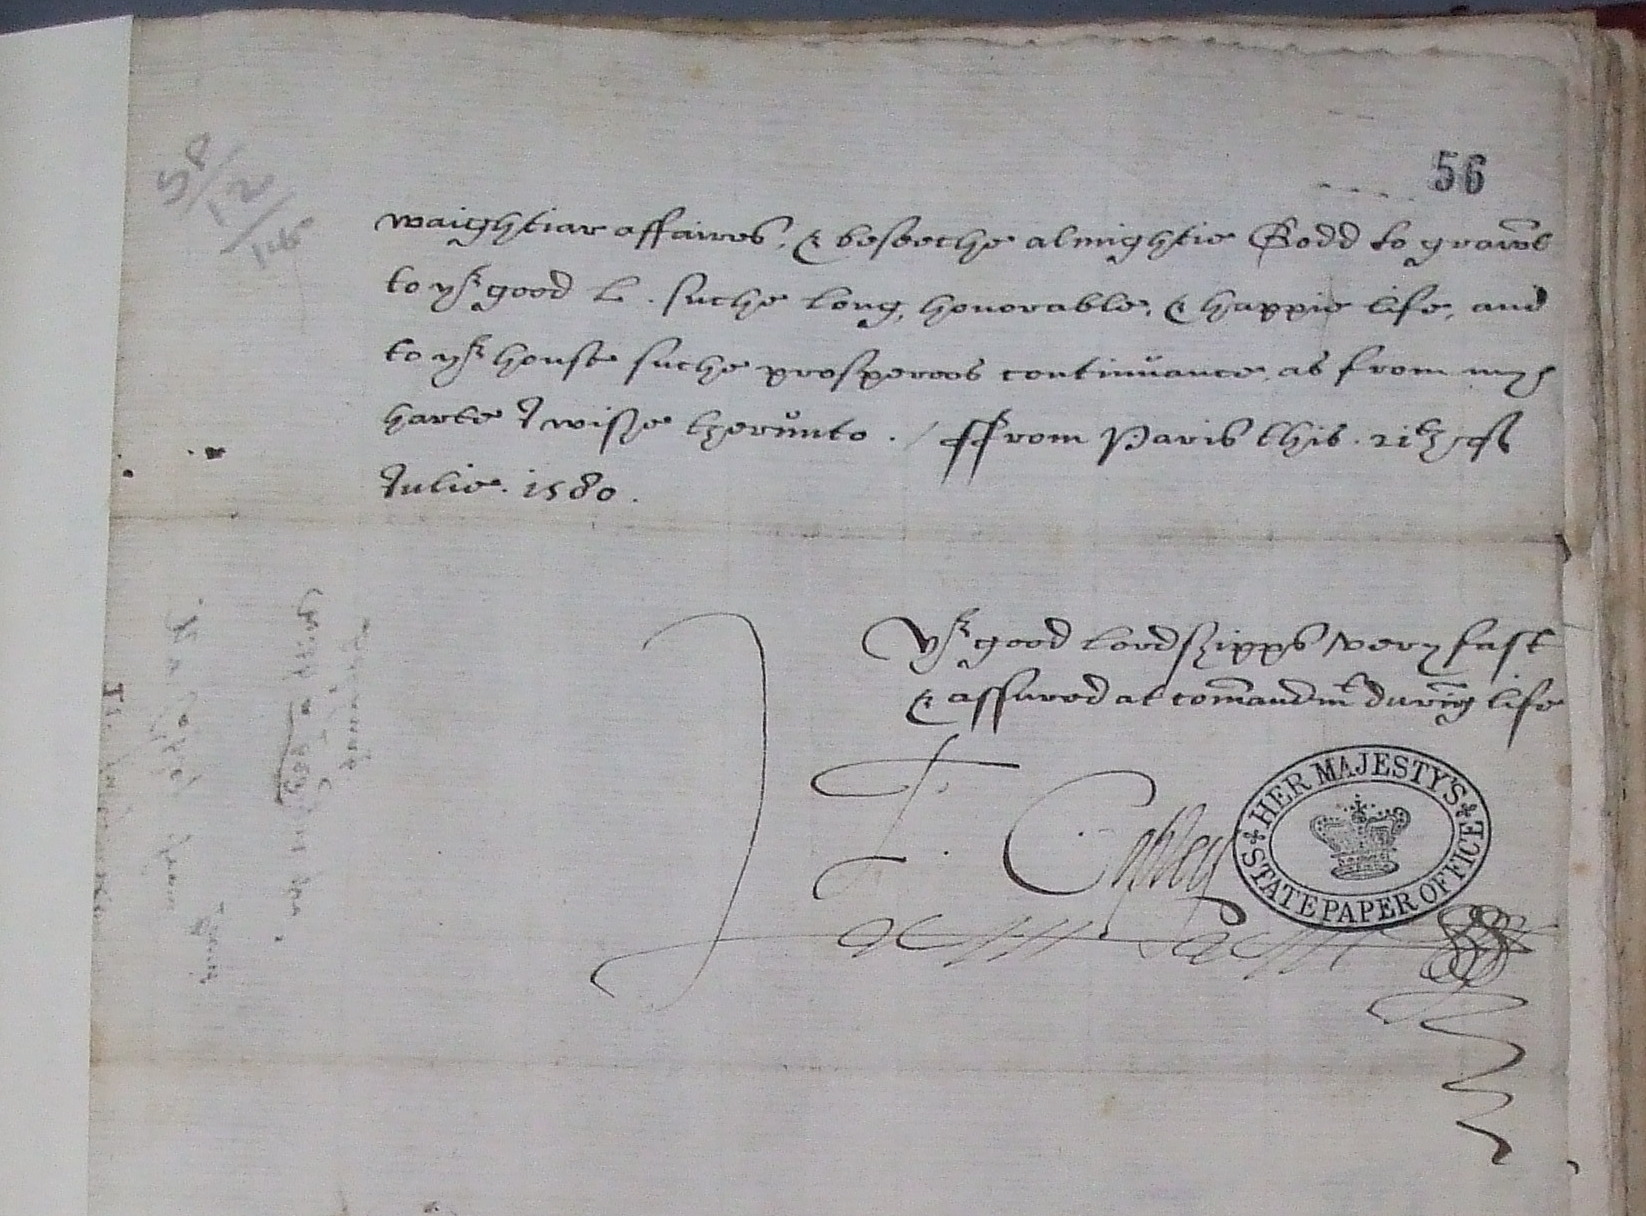 56
waightiar affaires, & beseeche almightie Godd to graunt
to yʳ good L. suche long, honorable, & happie life, and
to yʳ house suche prosperoos continuance, as from my
harte I wishe therunto. / ffrom Paris this. 21th of
Julie. 1580.
Yʳ good Lordshipps very fast
& assured at com̄andmᵗ during life
T. Copley
HER MAJESTY'S
STATE PAPER OFFICE